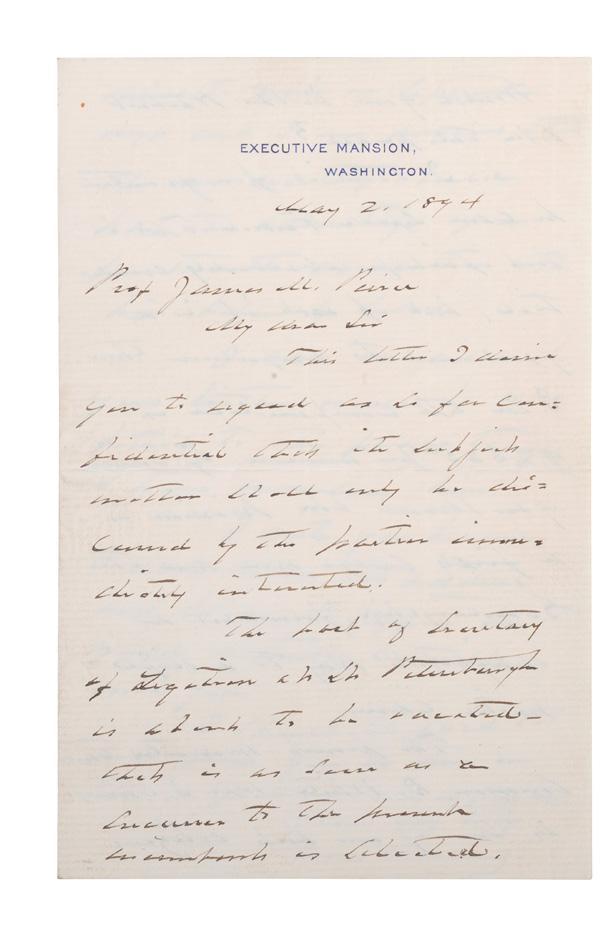 EXECUTIVE MANSION,
WASHINGTON.
May 2. 1894
Prof James M. Peirce
My dear Sir
This letter I desire
you to regard as so far con=
fidential that its subject
matter shall only be dis=
cussed by the parties imme=
diately interested.
The post of Secretary
of Legation at St Petersburgh
is about to be vacated –
that is as soon as a
successor to the present
incumbent is selected.